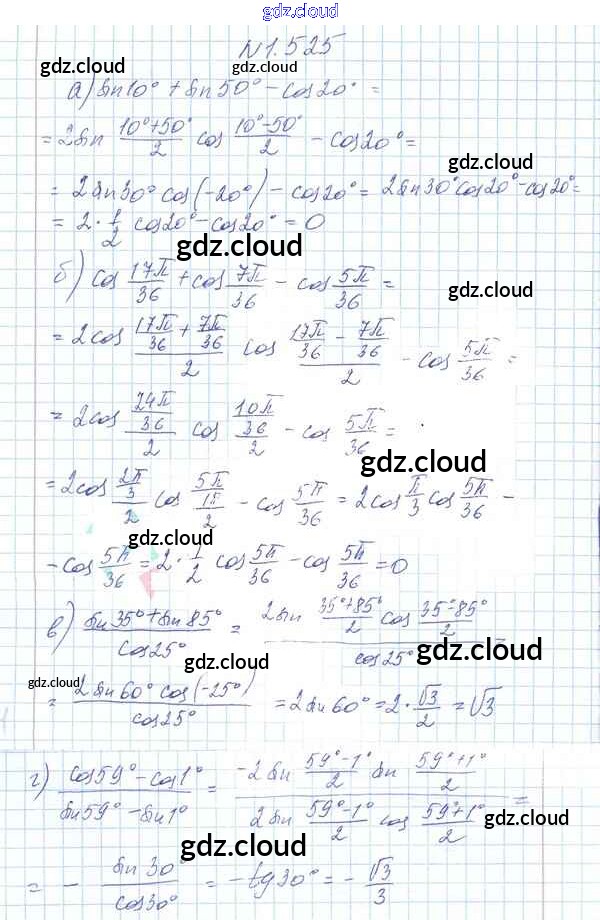 gdz.cloud
N1.525
gdz.cloud gdz.cloud
а) sin10° + sin50° - cos20° =
= 2sin (10°+50°)/2 cos (10°-50°)/2 - cos20° =
gdz.cloud
= 2sin30° cos(-20°) - cos20° = 2sin30°cos20° - cos20° =
= 2·1/2 cos20° - cos20° = 0
gdz.cloud
б) cos 17π/36 + cos 7π/36 - cos 5π/36 =
gdz.cloud
= 2cos (17π/36 + 7π/36)/2 cos (17π/36 - 7π/36)/2 - cos 5π/36 =
= 2cos (24π/36)/2 cos (10π/36)/2 - cos 5π/36 =
gdz.cloud
= 2cos (2π/3)/2 cos (5π/18)/2 - cos 5π/36 = 2cos π/3 cos 5π/36 -
gdz.cloud
- cos 5π/36 = 2·1/2 cos 5π/36 - cos 5π/36 = 0
в) (sin35° + sin85°)/cos25° = (2sin (35°+85°)/2 cos (35°-85°)/2)/cos25° =
gdz.cloud
gdz.cloud
gdz.cloud
= (2sin60° cos(-25°))/cos25° = 2sin60° = 2·√3/2 = √3
г) (cos59° - cos1°)/(sin59° - sin1°) = (-2sin (59°-1°)/2 sin (59°+1°)/2)/(2sin (59°-1°)/2 cos (59°+1°)/2) =
gdz.cloud gdz.cloud
= - sin30°/cos30° = -tg30° = - √3/3